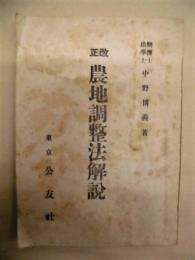 辯護士
法學士 中野博義著
改正
農地調整法解説
東京 公友社